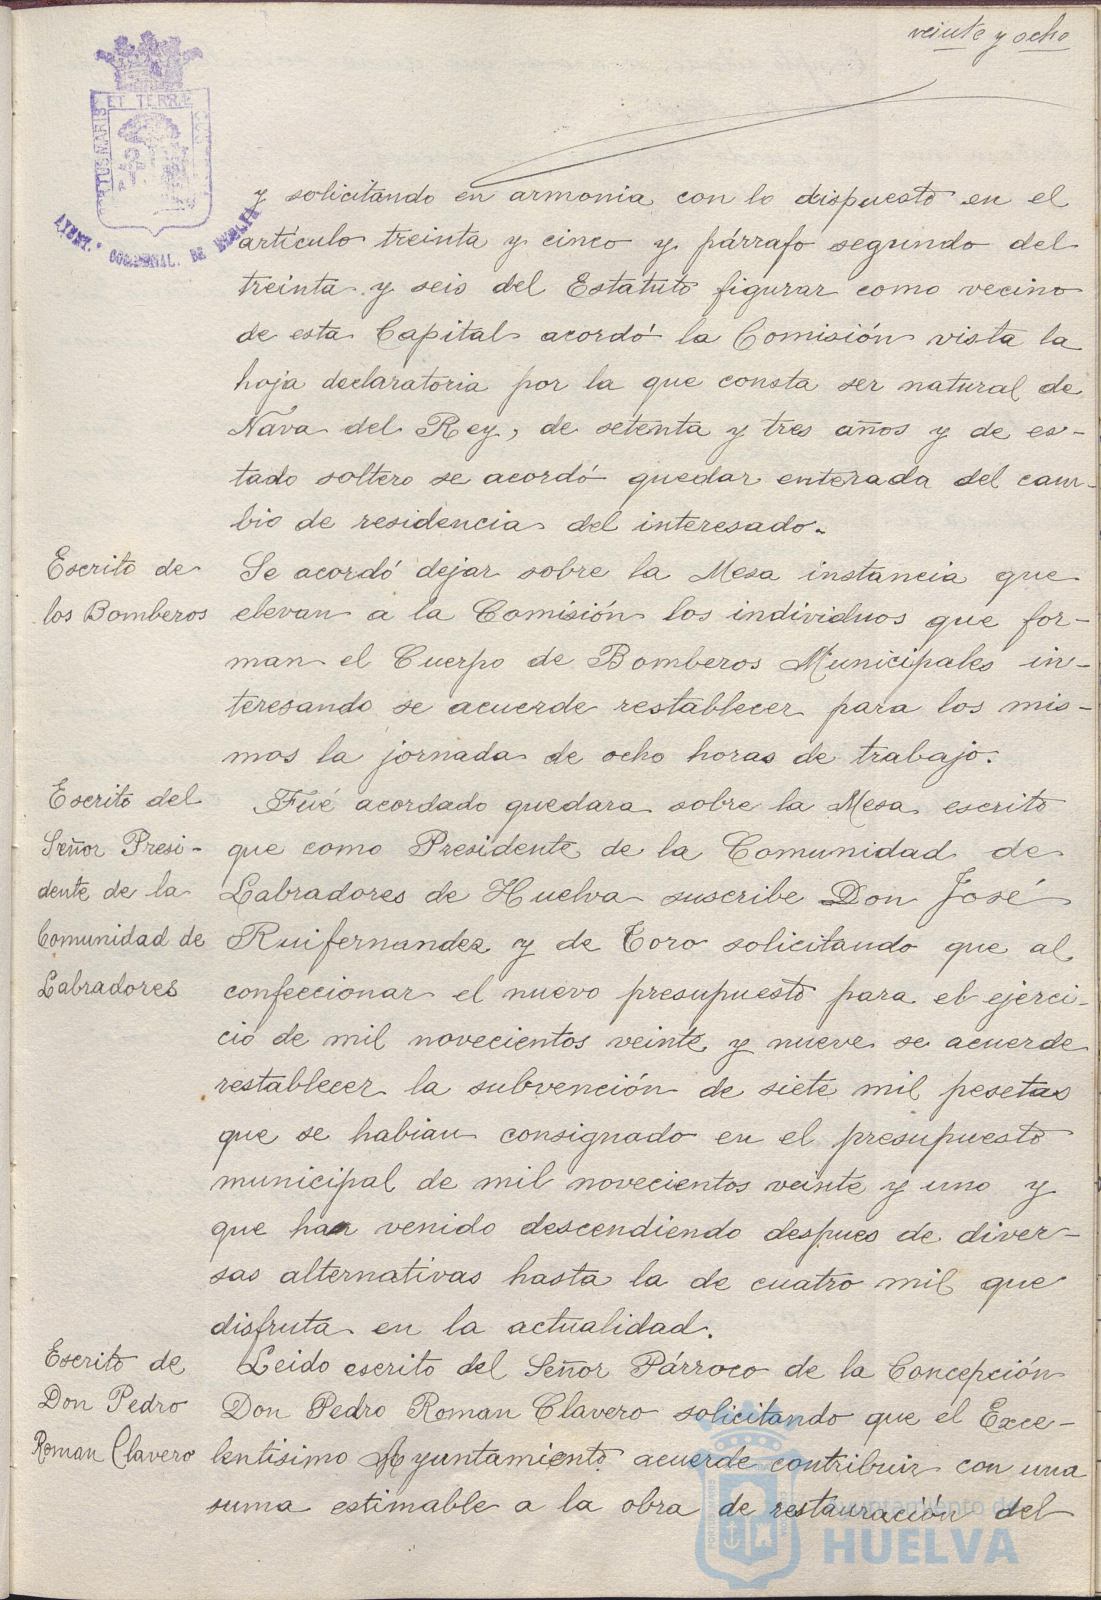 veinte y ocho
ET TERRÆ
TUS MARIS
AYUNT.º CONSTITUCIONAL. DE HUELVA
y solicitando en armonia con lo dispuesto en el
artículo treinta y cinco y párrafo segundo del
treinta y seis del Estatuto figurar como vecino
de esta Capital acordó la Comisión vista la
hoja declaratoria por la que consta ser natural de
Nava del Rey, de setenta y tres años y de es-
tado soltero se acordó quedar enterada del cam-
bio de residencia del interesado.
Escrito de
los Bomberos
Se acordó dejar sobre la Mesa instancia que
elevan a la Comisión los individuos que for-
man el Cuerpo de Bomberos Municipales in-
teresando se acuerde restablecer para los mis-
mos la jornada de ocho horas de trabajo.
Escrito del
Señor Presi-
dente de la
Comunidad de
Labradores
Fué acordado quedara sobre la Mesa escrito
que como Presidente de la Comunidad de
Labradores de Huelva suscribe Don José
Ruifernandez y de Toro solicitando que al
confeccionar el nuevo presupuesto para el ejerci-
cio de mil novecientos veinte y nueve se acuerde
restablecer la subvención de siete mil pesetas
que se habian consignado en el presupuesto
municipal de mil novecientos veinte y uno y
que han venido descendiendo despues de diver-
sas alternativas hasta la de cuatro mil que
disfruta en la actualidad.
Escrito de
Don Pedro
Roman Clavero
Leido escrito del Señor Párroco de la Concepción
Don Pedro Roman Clavero solicitando que el Exce-
lentisimo Ayuntamiento acuerde contribuir con una
suma estimable a la obra de restauración del
Ayuntamiento de
HUELVA